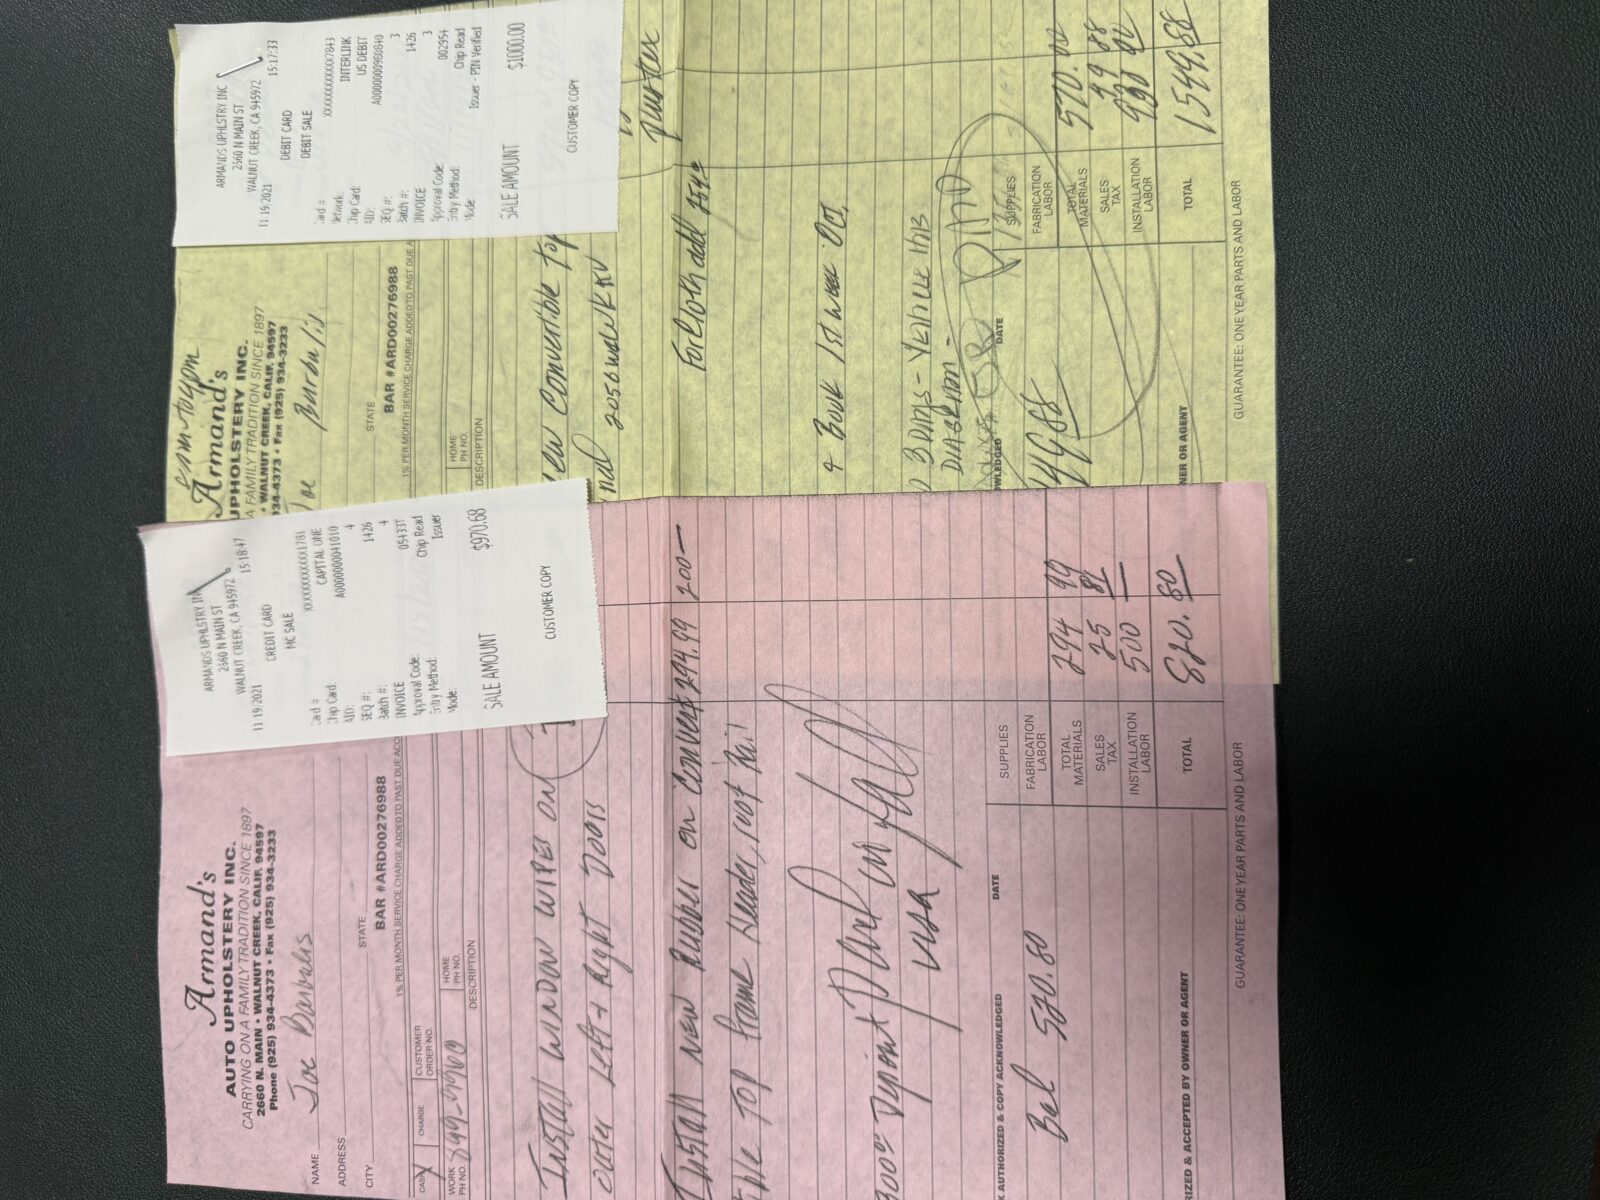 Armand's
AUTO UPHOLSTERY INC.
CARRYING ON A FAMILY TRADITION SINCE 1897
2660 N. MAIN • WALNUT CREEK, CALIF. 94597
Phone (925) 934-4373 • Fax (925) 934-3233
NAME Joe
ADDRESS
CITY STATE
BAR #ARD00276988
1% PER MONTH SERVICE CHARGE ADDED TO PAST DUE ACC
CASH X CHARGE CUSTOMER ORDER NO.
WORK PH NO. HOME PH NO.
DESCRIPTION
INSTALL WINDOW WIPES ON
outer Left + Right Doors
INSTALL NEW Rubber on Convert 294.99 200—
Top frame Header, roof Rail
Deposit
VISA
AUTHORIZED & COPY ACKNOWLEDGED DATE
Bal 520.80
SUPPLIES
FABRICATION LABOR
TOTAL MATERIALS 294 99
SALES TAX 25 81
INSTALLATION LABOR 500 —
TOTAL 820.80
RIZED & ACCEPTED BY OWNER OR AGENT
GUARANTEE: ONE YEAR PARTS AND LABOR
ARMANDS UPHLSTRY IN
2660 N MAIN ST
WALNUT CREEK, CA 945972
11 19/2021 15:18:47
CREDIT CARD
MC SALE
Card # XXXXXXXXXXXX1781
Chip Card: CAPITAL ONE
AID: A0000000041010
SEQ #: 4
Batch #: 1426
INVOICE 4
Approval Code: 05433T
Entry Method: Chip Read
Mode: Issuer
SALE AMOUNT $970.68
CUSTOMER COPY
Armand's
UPHOLSTERY INC.
A FAMILY TRADITION SINCE 1897
• WALNUT CREEK, CALIF. 94597
934-4373 • Fax (925) 934-3233
Joe
STATE
BAR #ARD00276988
1% PER MONTH SERVICE CHARGE ADDED TO PAST DUE A
HOME PH NO
DESCRIPTION
New Convertible Top
For Cloth add
+ Book 1st week Oct.
3 DAYS - this
SUPPLIES
FABRICATION LABOR
TOTAL MATERIALS 570.00
SALES TAX 49 88
INSTALLATION LABOR
TOTAL 1549.88
WLEDGED DATE
NER OR AGENT
GUARANTEE: ONE YEAR PARTS AND LABOR
ARMANDS UPHLSTRY INC
2560 N MAIN ST
WALNUT CREEK, CA 945972
11 19/2021 15:17:33
DEBIT CARD
DEBIT SALE
Card # XXXXXXXXXXXX7843
Network: INTERLINK
Chip Card: US DEBIT
AID: A0000000980840
SEQ #: 3
Batch #: 1426
INVOICE 3
Approval Code: 002954
Entry Method: Chip Read
Mode: Issuer - PIN Verified
SALE AMOUNT $1000.00
CUSTOMER COPY